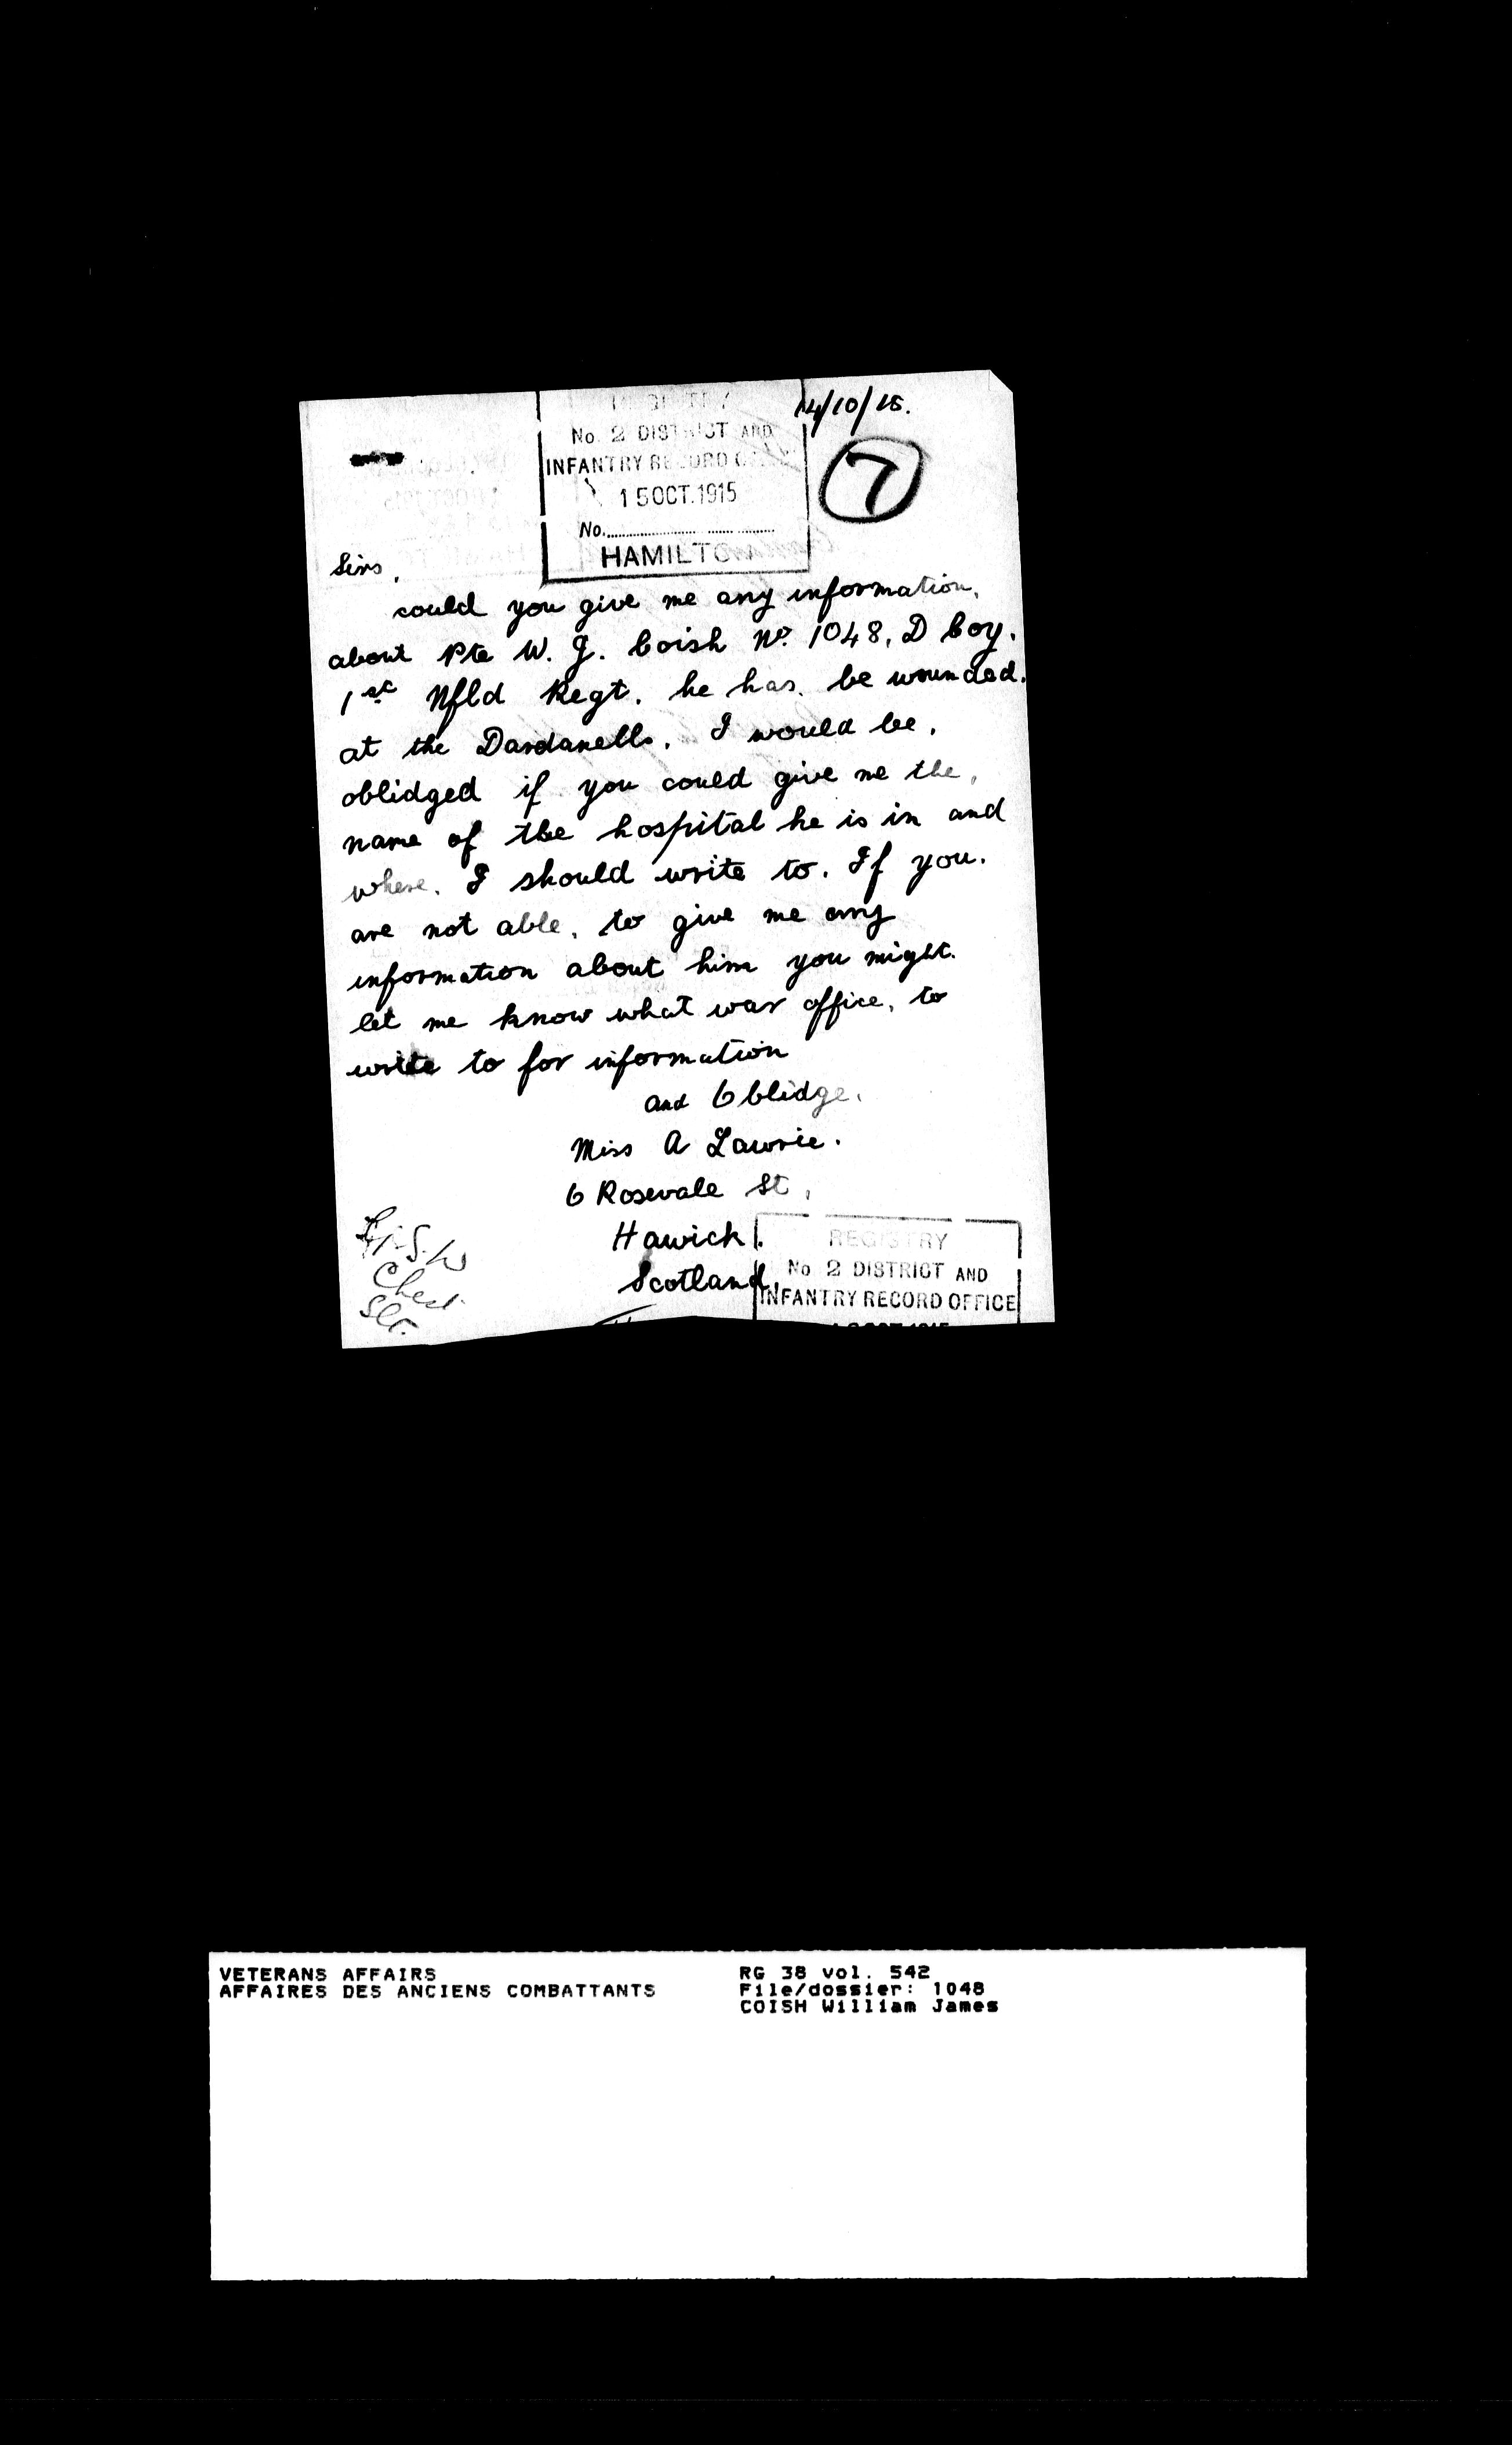 14/10/15.
7
REGISTRY
No. 2 DISTRICT AND
INFANTRY RECORD OFFICE
15 OCT. 1915
No.
HAMILTON
Sirs,
could you give me any information,
about Pte W. J. Coish No. 1048, D Coy.
1st Nfld Regt. he has. be wounded.
at the Dardanells. I would be,
oblidged if you could give me the,
name of the hospital he is in and
where. I should write to. If you.
are not able, to give me any
information about him you might.
let me know what war office, to
write to for information
and Oblidge.
Miss A Lawrie.
6 Rosevale St,
Hawick.
Scotland.
G.S.W
Chest
Slt.
REGISTRY
No 2 DISTRICT AND
INFANTRY RECORD OFFICE
VETERANS AFFAIRS
AFFAIRES DES ANCIENS COMBATTANTS
RG 38 vol. 542
File/dossier: 1048
COISH William James